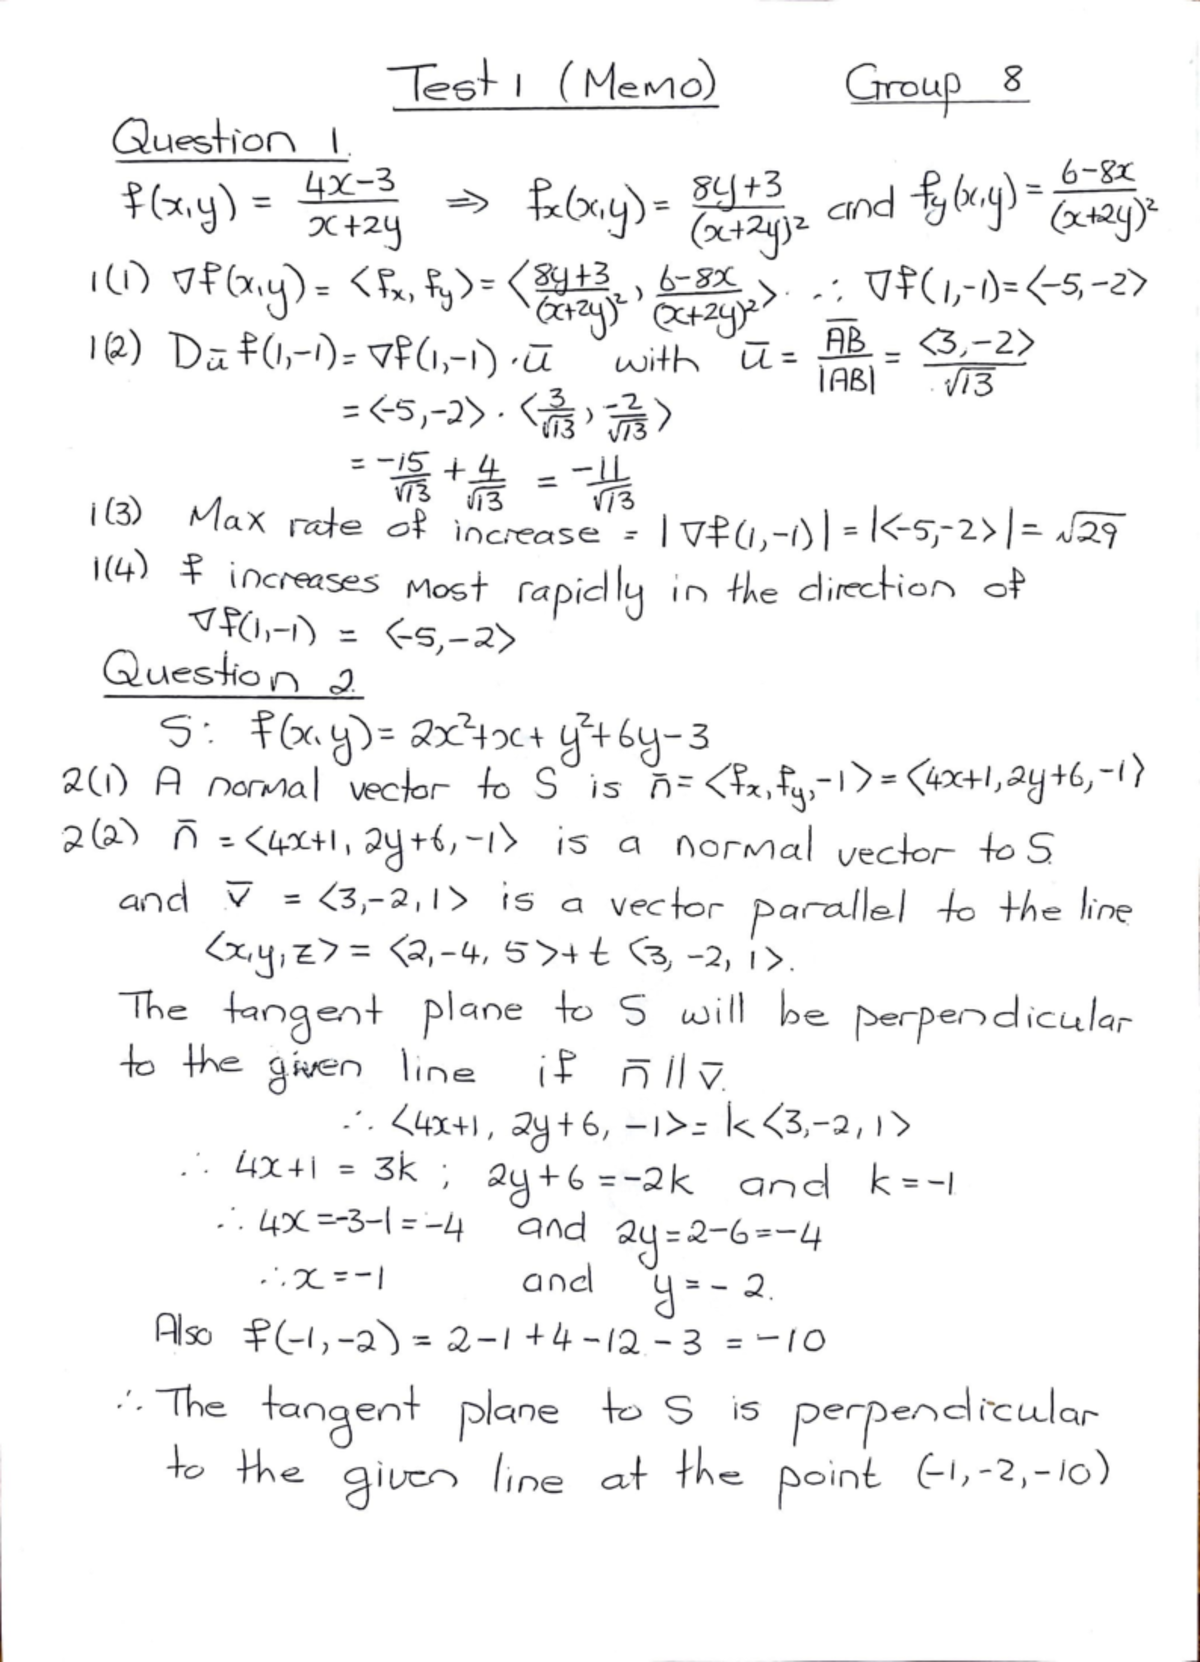 Test 1 (Memo) Group 8
Question 1.
f(x,y) = (4x-3)/(x+2y) ⇒ fx(x,y) = (8y+3)/(x+2y)² and fy(x,y) = (6-8x)/(x+2y)²
1(1) ∇f(x,y) = <fx, fy> = <(8y+3)/(x+2y)², (6-8x)/(x+2y)²>. ∴ ∇f(1,-1) = <-5,-2>
1(2) Dū f(1,-1) = ∇f(1,-1) · ū with ū = A̅B̅/|AB| = <3,-2>/√13
= <-5,-2> · <3/√13, -2/√13>
= -15/√13 + 4/√13 = -11/√13
1(3) Max rate of increase = |∇f(1,-1)| = |<-5,-2>| = √29
1(4) f increases most rapidly in the direction of
∇f(1,-1) = <-5,-2>
Question 2.
S: f(x,y) = 2x²+x+y²+6y-3
2(1) A normal vector to S is n̄ = <fx, fy, -1> = <4x+1, 2y+6, -1>
2(2) n̄ = <4x+1, 2y+6, -1> is a normal vector to S
and v̄ = <3,-2,1> is a vector parallel to the line
<x,y,z> = <2,-4,5> + t <3,-2,1>.
The tangent plane to S will be perpendicular
to the given line if n̄ // v̄.
∴ <4x+1, 2y+6, -1> = k<3,-2,1>
∴ 4x+1 = 3k ; 2y+6 = -2k and k = -1
∴ 4x = -3-1 = -4 and 2y = 2-6 = -4
∴ x = -1 and y = -2.
Also f(-1,-2) = 2-1+4-12-3 = -10
∴ The tangent plane to S is perpendicular
to the given line at the point (-1,-2,-10)